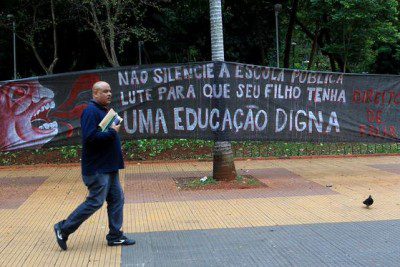 NÃO SILENCIE A ESCOLA PÚBLICA
LUTE PARA QUE SEU FILHO TENHA
UMA EDUCAÇÃO DIGNA
DIREITO
DE